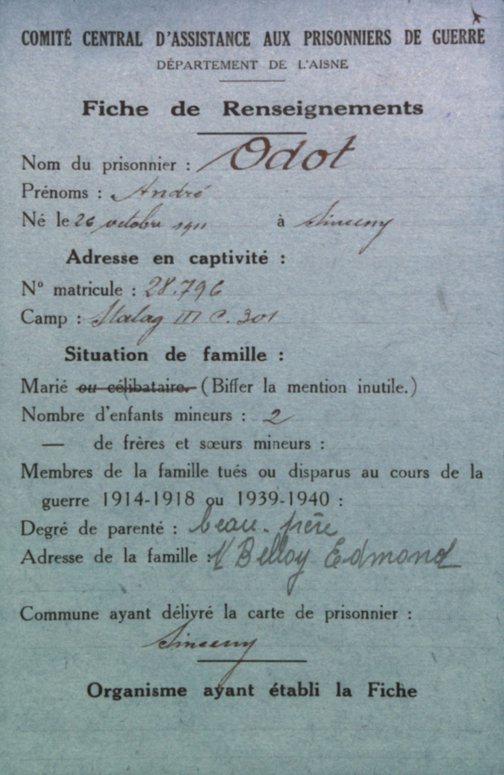 COMITÉ CENTRAL D'ASSISTANCE AUX PRISONNIERS DE GUERRE
DÉPARTEMENT DE L'AISNE
Fiche de Renseignements
Nom du prisonnier : Odot
Prénoms : André
Né le 26 octobre 1911 à Sinceny
Adresse en captivité :
N° matricule : 28.796
Camp : Stalag III C. 301
Situation de famille :
Marié ou célibataire. (Biffer la mention inutile.)
Nombre d'enfants mineurs : 2
— de frères et sœurs mineurs :
Membres de la famille tués ou disparus au cours de la
guerre 1914-1918 ou 1939-1940 :
Degré de parenté : beau-frère
Adresse de la famille : Belloy Edmond
Commune ayant délivré la carte de prisonnier :
Sinceny
Organisme ayant établi la Fiche